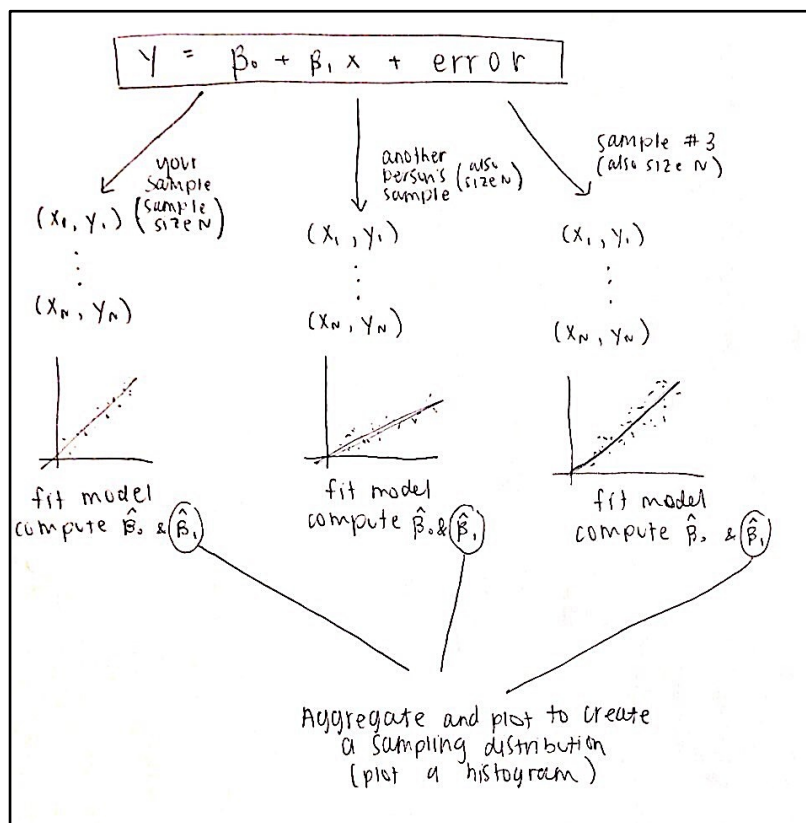 Y = β₀ + β₁ x + error
your
sample
(sample
size N)
(x₁, y₁)
(x_N, y_N)
fit model
compute β̂₀ & β̂₁
another
person's
sample
(also
size N)
(x₁, y₁)
(x_N, y_N)
fit model
compute β̂₀ & β̂₁
sample #3
(also size N)
(x₁, y₁)
(x_N, y_N)
fit model
compute β̂₀ & β̂₁
Aggregate and plot to create
a sampling distribution
(plot a histogram)